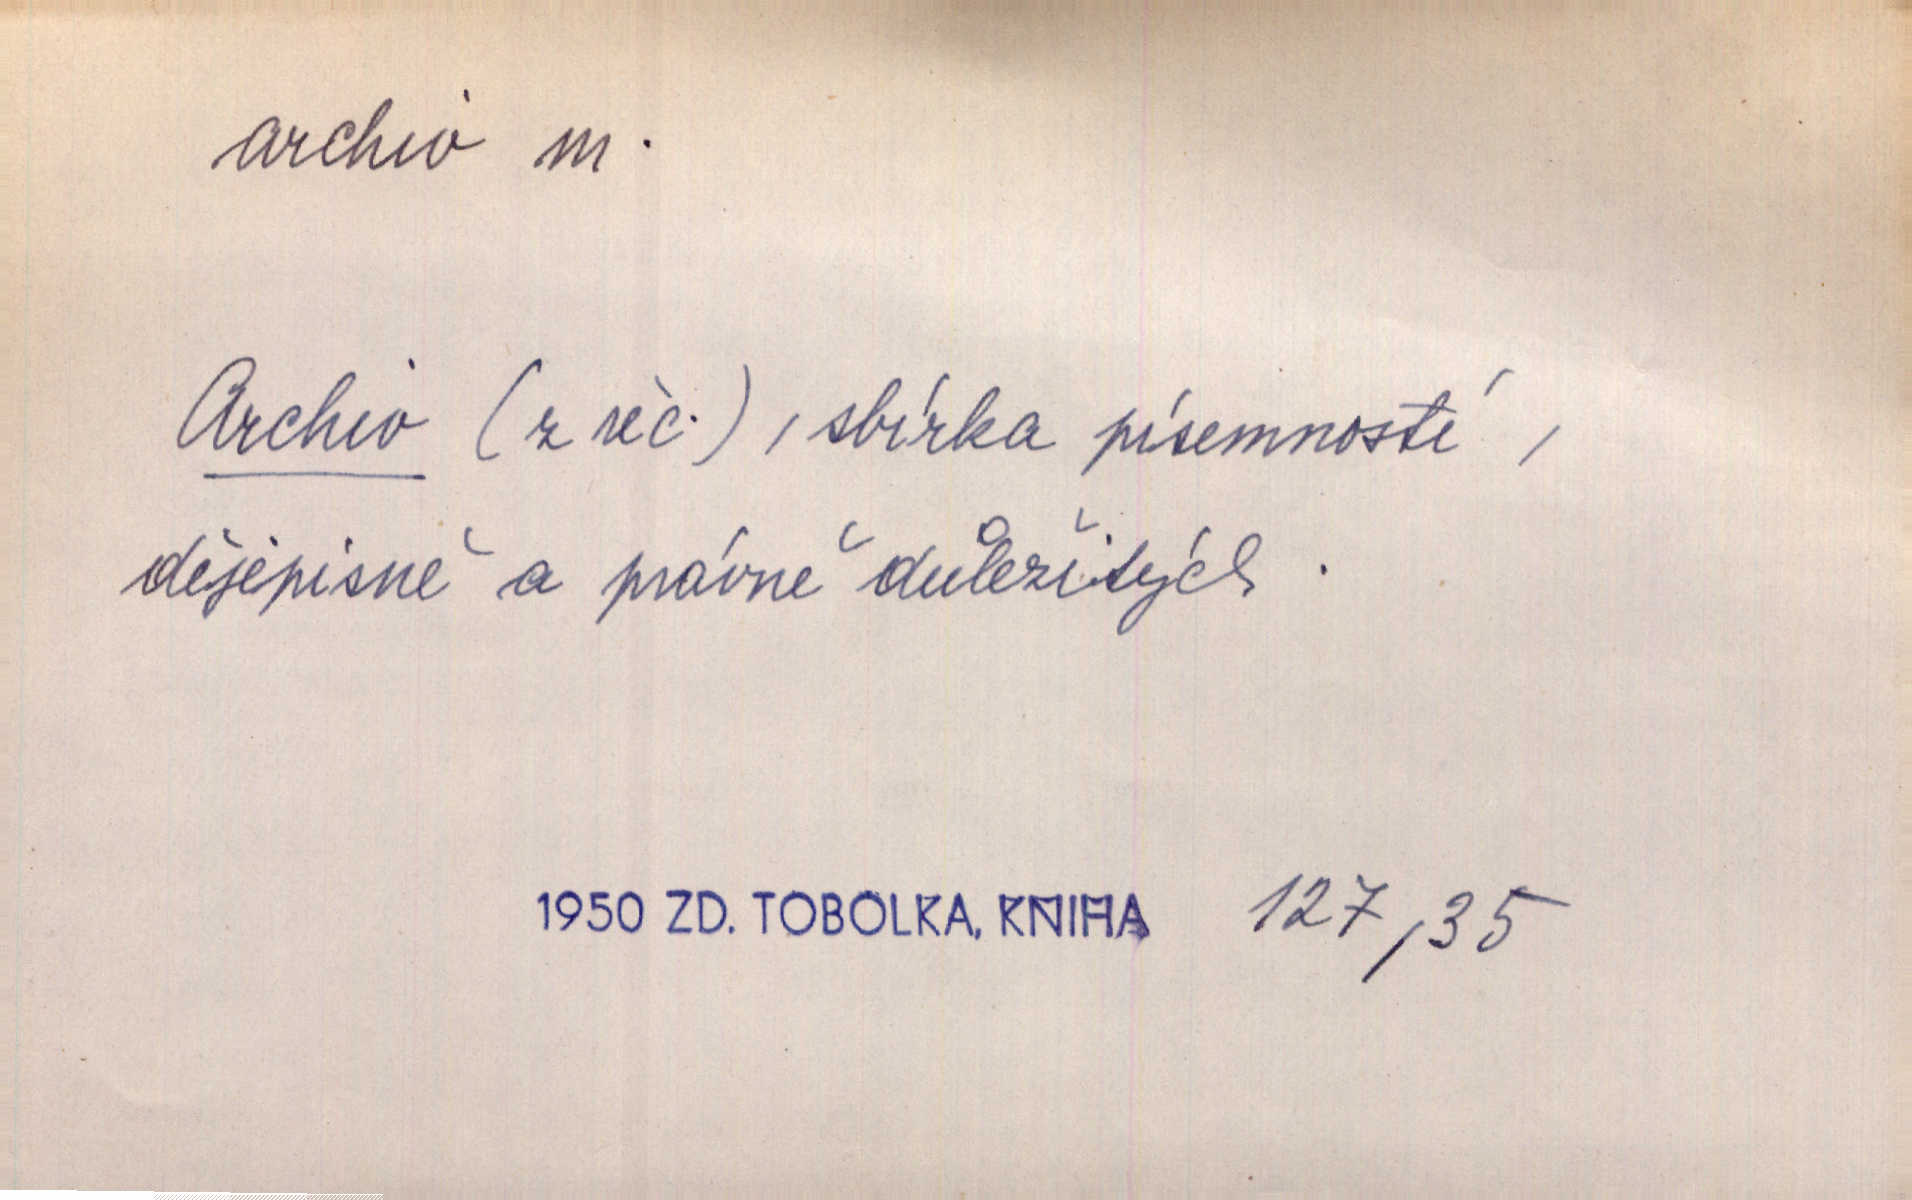 archiv m.
Archiv (z řeč.), sbírka písemností,
dějepisně a právně důležitých.
1950 ZD. TOBOLKA, KNIHA 127,35